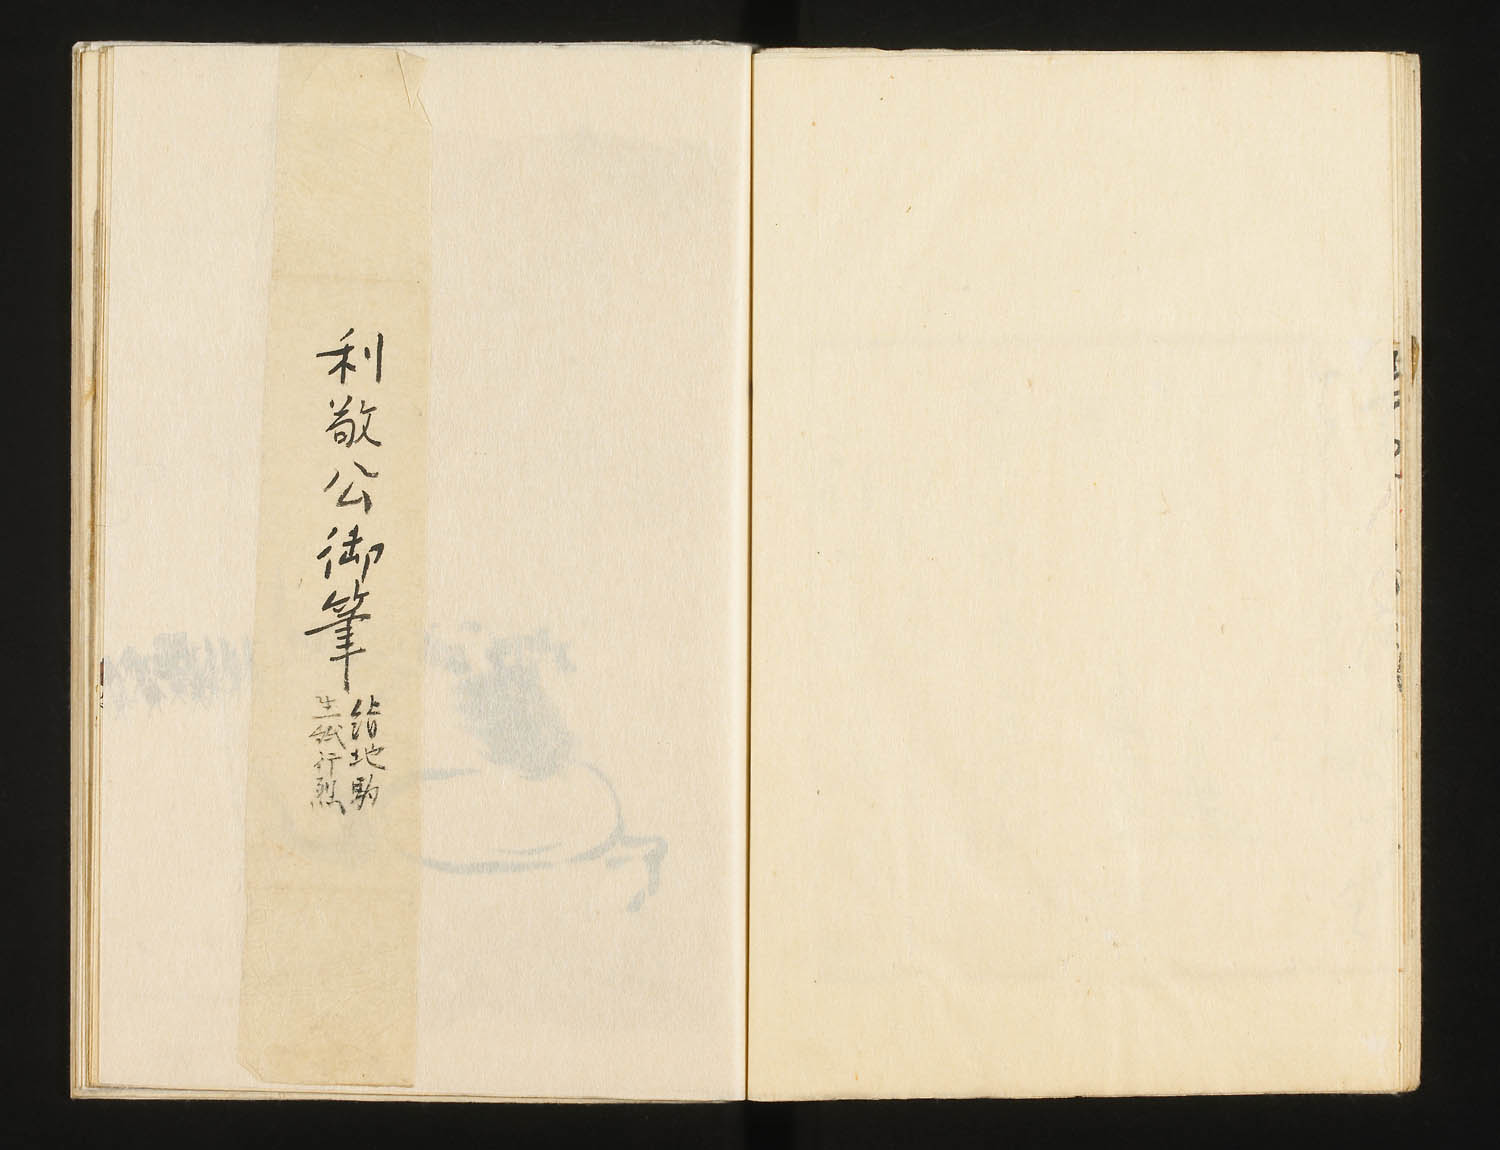 利敬公御筆
絵地駒
生紙行烈